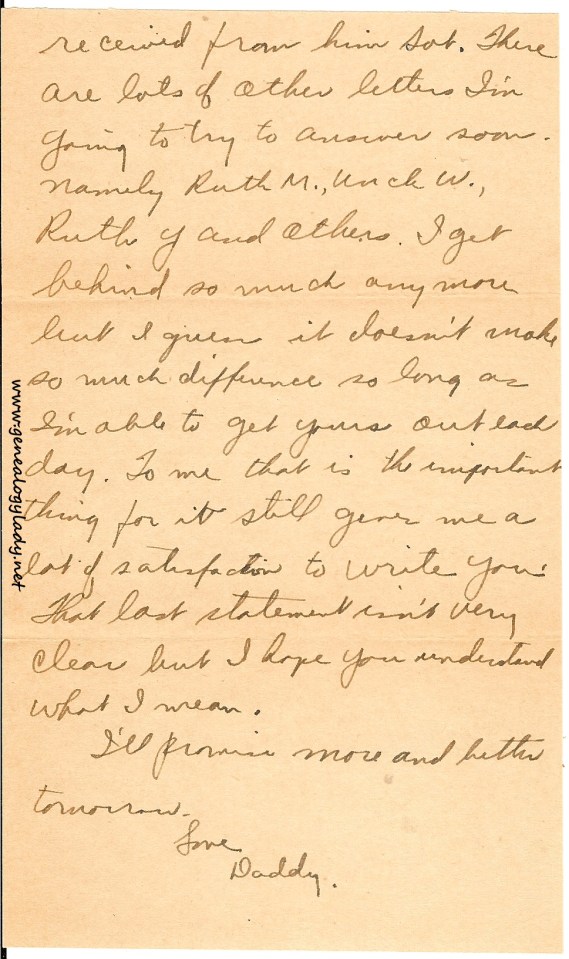 received from him Sat. There
are lots of other letters I'm
going to try to answer soon.
Namely Ruth M., Uncle W.,
Ruth Y and others. I get
behind so much anymore
but I guess it doesn't make
so much difference so long as
I'm able to get yours out each
day. To me that is the important
thing for it still gives me a
lot of satisfaction to write you.
That last statement isn't very
clear but I hope you understand
what I mean.
I'll promise more and better
tomorrow.
Love
Daddy.
www.genealogylady.net